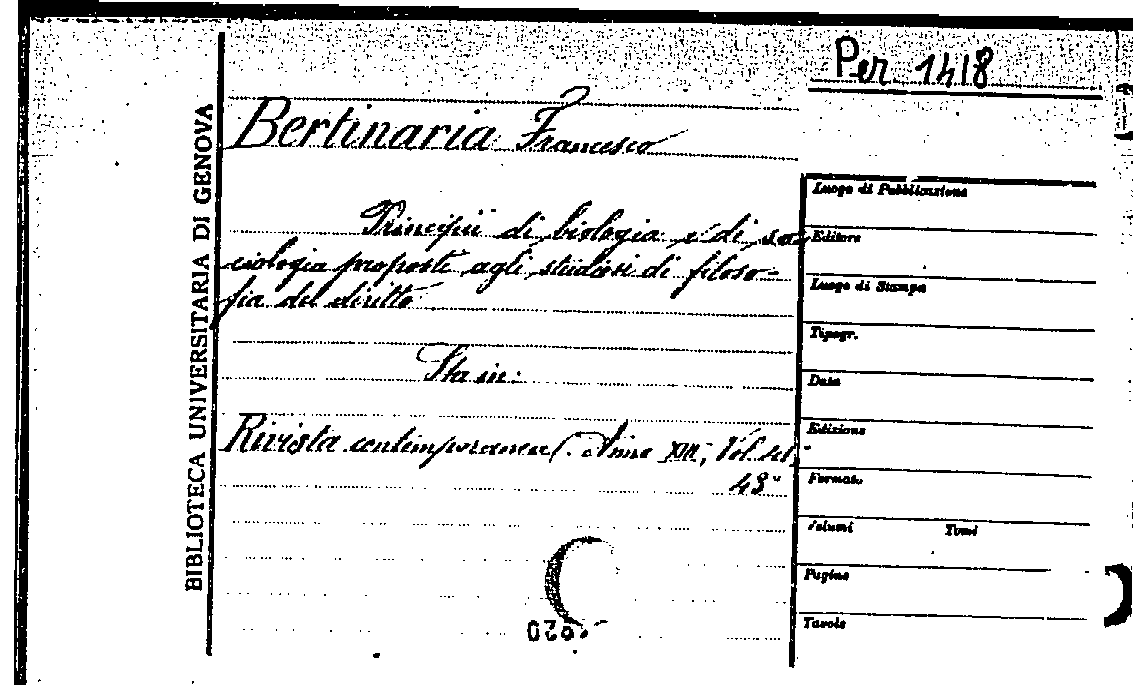 Per 1418
BIBLIOTECA UNIVERSITARIA DI GENOVA
Bertinaria Francesco
Principii di biologia e di so-
ciologia proposti agli studiosi di filoso-
fia del diritto
Sta in:
Rivista contemporanea. Anno XIII, Vol. 41,
43°
Luogo di Pubblicazione
Editore
Luogo di Stampa
Tipogr.
Data
Edizione
Formato
Volumi Tomi
Pagine
Tavole